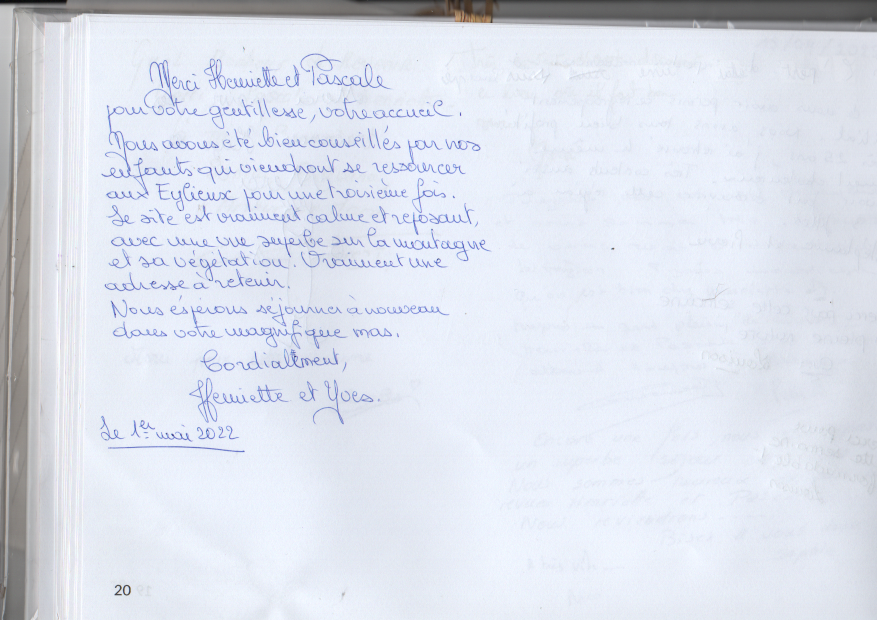 Merci Henriette et Pascale
pour votre gentillesse, votre accueil.
Nous avons été bien conseillés par nos
enfants qui viendront se ressourcer
aux Eylieux pour une troisième fois.
Le site est vraiment calme et reposant,
avec une vue superbe sur la montagne
et sa végétation. Vraiment une
adresse à retenir.
Nous éspérons séjourner à nouveau
dans votre magnifique mas.
Cordialement,
Henriette et Yves.
Le 1er mai 2022
20